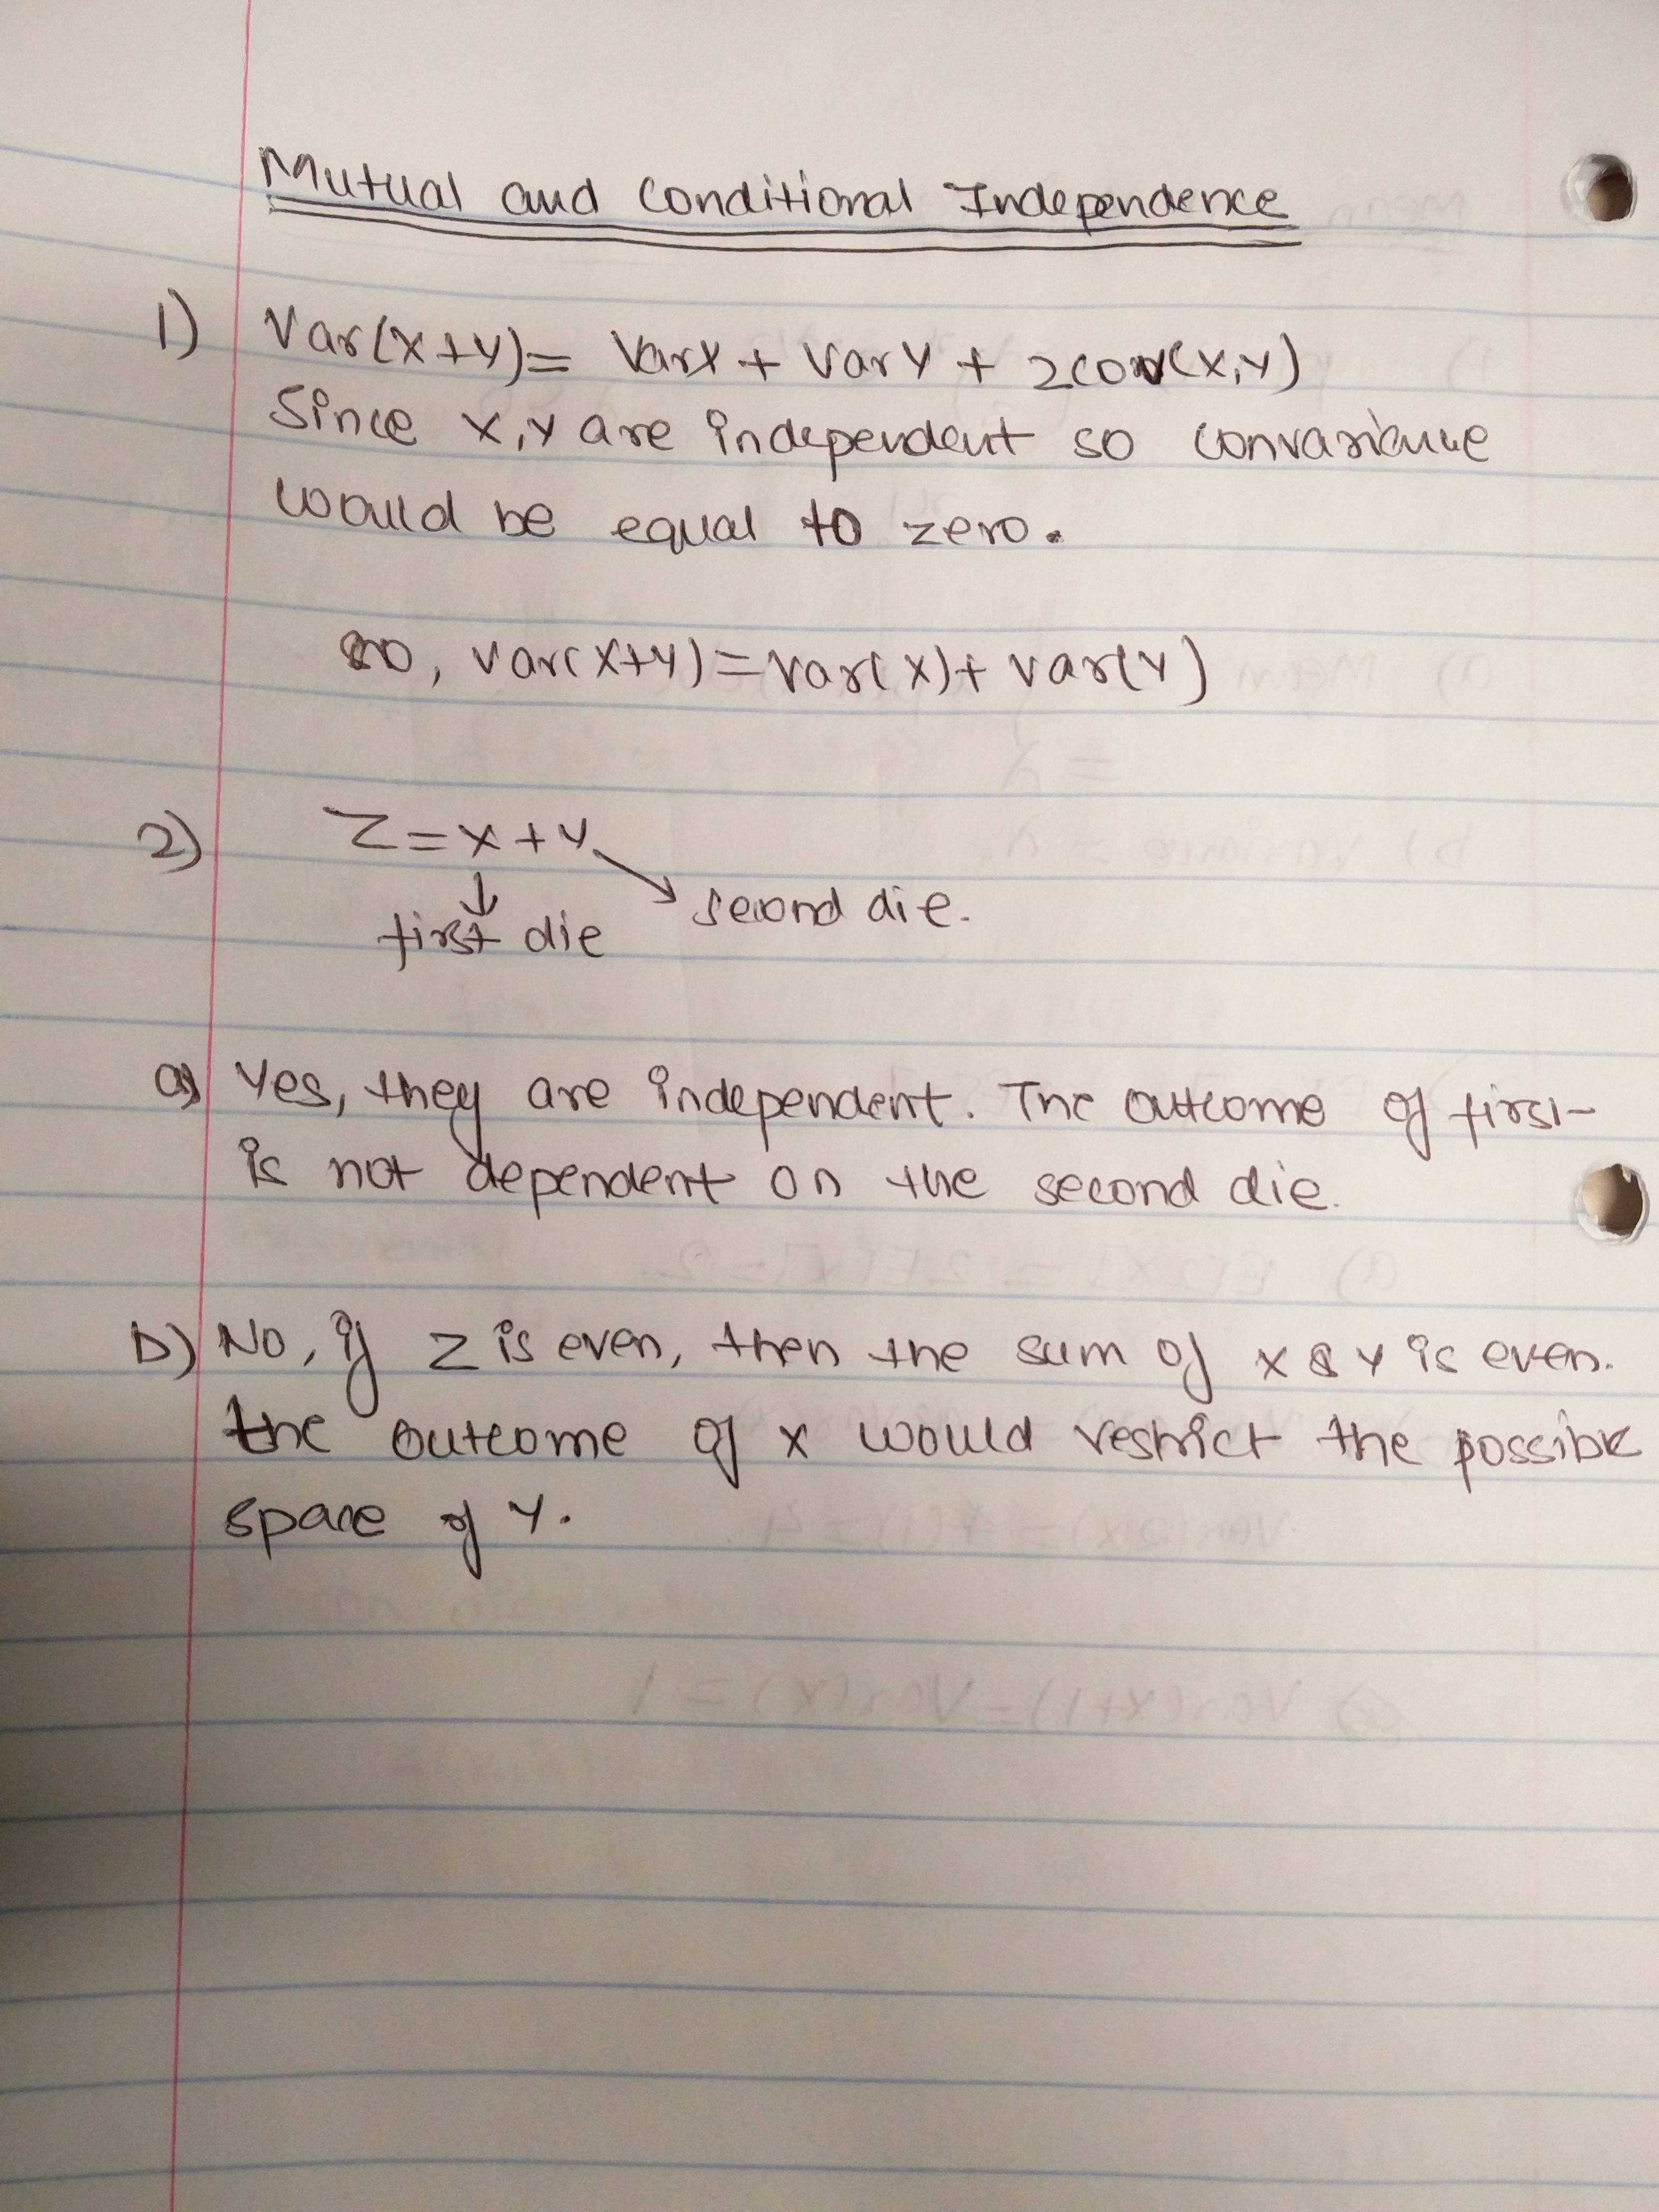 Mutual and Conditional Independence
1) Var(X+Y) = VarX + VarY + 2conv(X,Y)
Since X,Y are independent so convariance
would be equal to zero.
so, Var(X+Y) = Var(X) + Var(Y)
2) Z = X + Y
second die.
first die
a) Yes, they are independent. The outcome of first
is not dependent on the second die.
b) No, if Z is even, then the sum of X & Y is even.
the outcome of X would restrict the possible
space of Y.